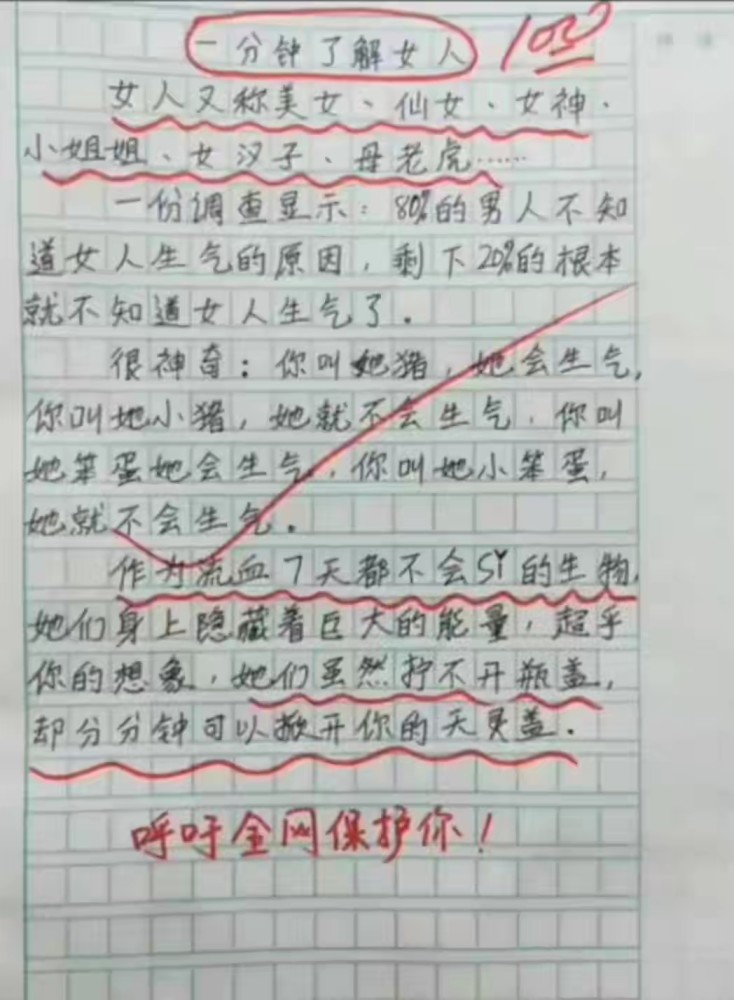 一分钟了解女人 100
女人又称美女、仙女、女神、
小姐姐、女汉子、母老虎……
一份调查显示：80%的男人不知
道女人生气的原因，剩下20%的根本
就不知道女人生气了.
很神奇：你叫她猪，她会生气，
你叫她小猪，她就不会生气.你叫
她笨蛋她会生气，你叫她小笨蛋，
她就不会生气.
作为流血7天都不会Si的生物，
她们身上隐藏着巨大的能量，超乎
你的想象，她们虽然拧不开瓶盖，
却分分钟可以掀开你的天灵盖.
呼吁全网保护你！